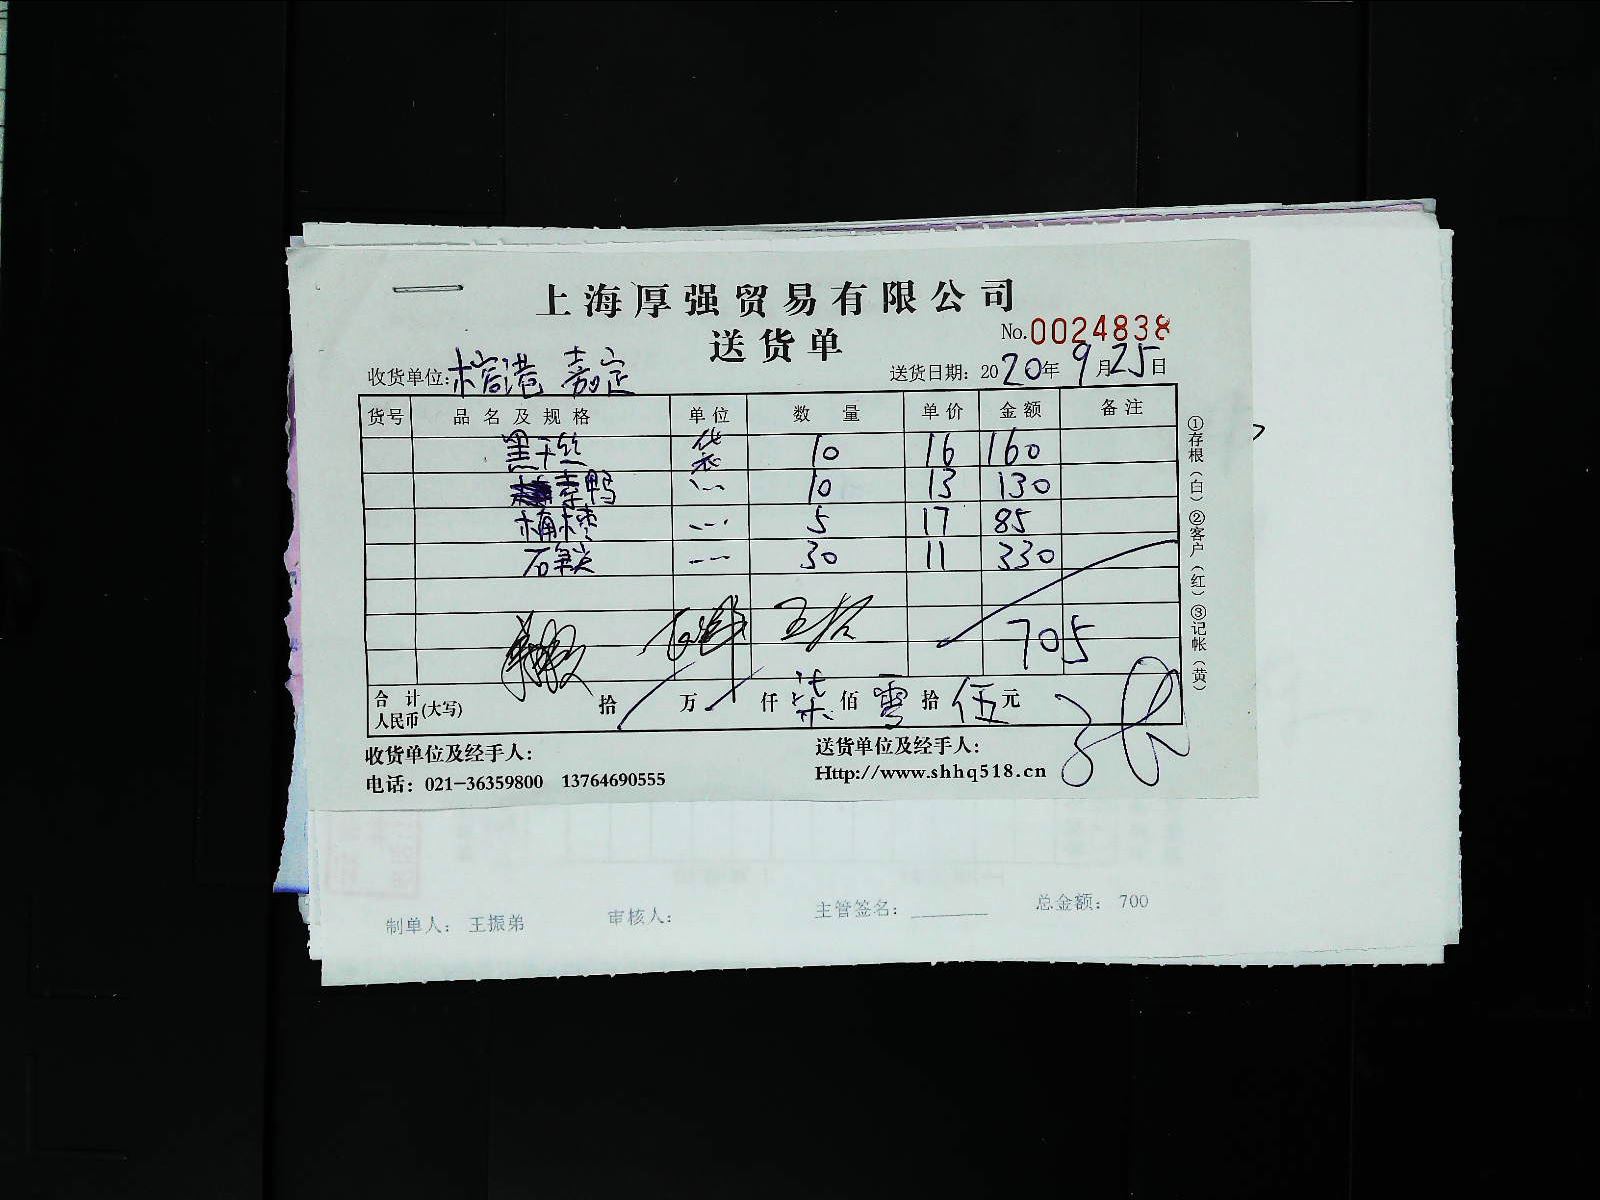 上海厚强贸易有限公司
送货单
No.0024838
收货单位：榕港 嘉定
送货日期：2020年9月25日
货号 品名及规格 单位 数量 单价 金额 备注
黑干丝 袋 10 16 160
素鸭 〃 10 13 130
桶枣 〃 5 17 85
石 30 11 330
705
合计人民币(大写) 拾 万 仟 柒 佰 零 拾 伍 元
收货单位及经手人：
送货单位及经手人：
电话：021-36359800 13764690555
Http://www.shhq518.cn
①存根（白）②客户（红）③记帐（黄）
制单人：王振弟 审核人： 主管签名： 总金额：700